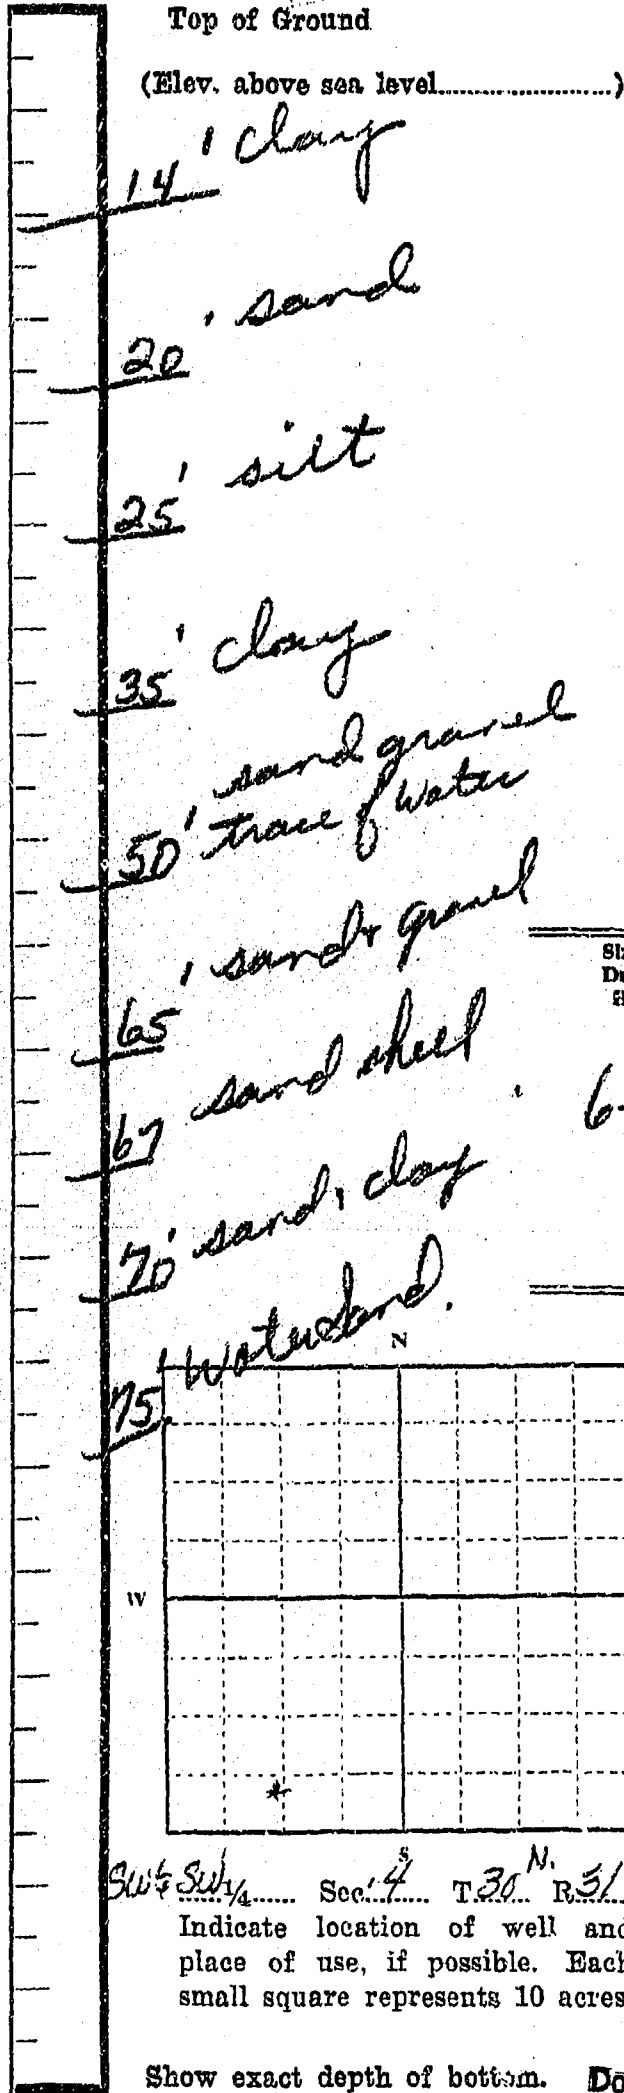 Top of Ground
(Elev. above sea level........................)
14' clay
20' sand
25' silt
35' clay
sand gravel
50' trace of water
65' sand & gravel
67 sand
70' sand, clay
75' Watersand.
N
W
S
6
SW¼ SW¼ Sec. 4 T. 30 N. R. 31
Indicate location of well and
place of use, if possible. Each
small square represents 10 acres
Show exact depth of bottom. Do